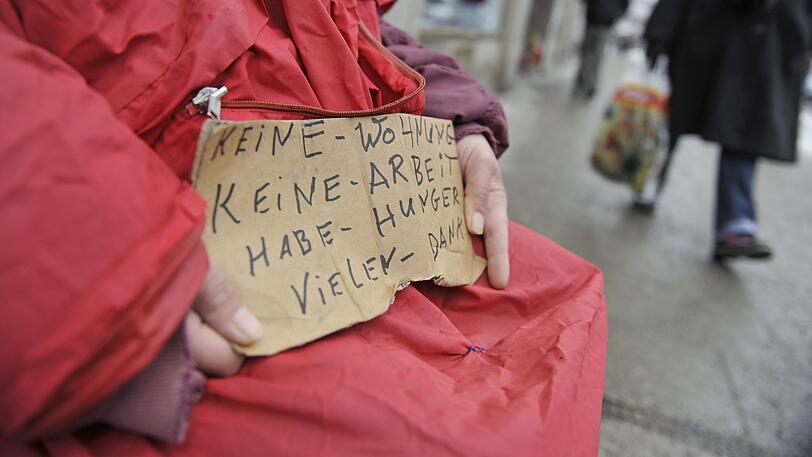 KEINE-WOHNUNG
KEINE-ARBEIT
HABE-HUNGER
VIELEN-DANK